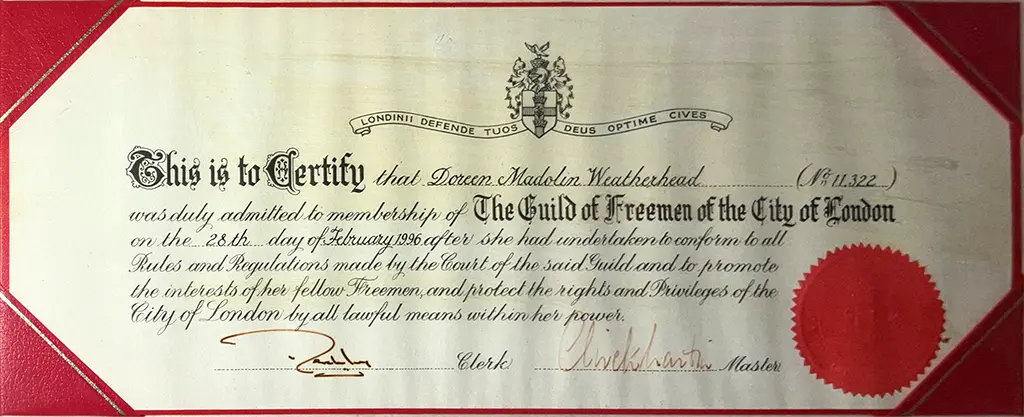 LONDINII DEFENDE TUOS DEUS OPTIME CIVES
This is to Certify that Doreen Madolin Weatherhead (No. 11,322)
was duly admitted to membership of The Guild of Freemen of the City of London
on the 28th day of February 1996 after she had undertaken to conform to all
Rules and Regulations made by the Court of the said Guild and to promote
the interests of her fellow Freemen, and protect the rights and Privileges of the
City of London by all lawful means within her power.
Clerk Master